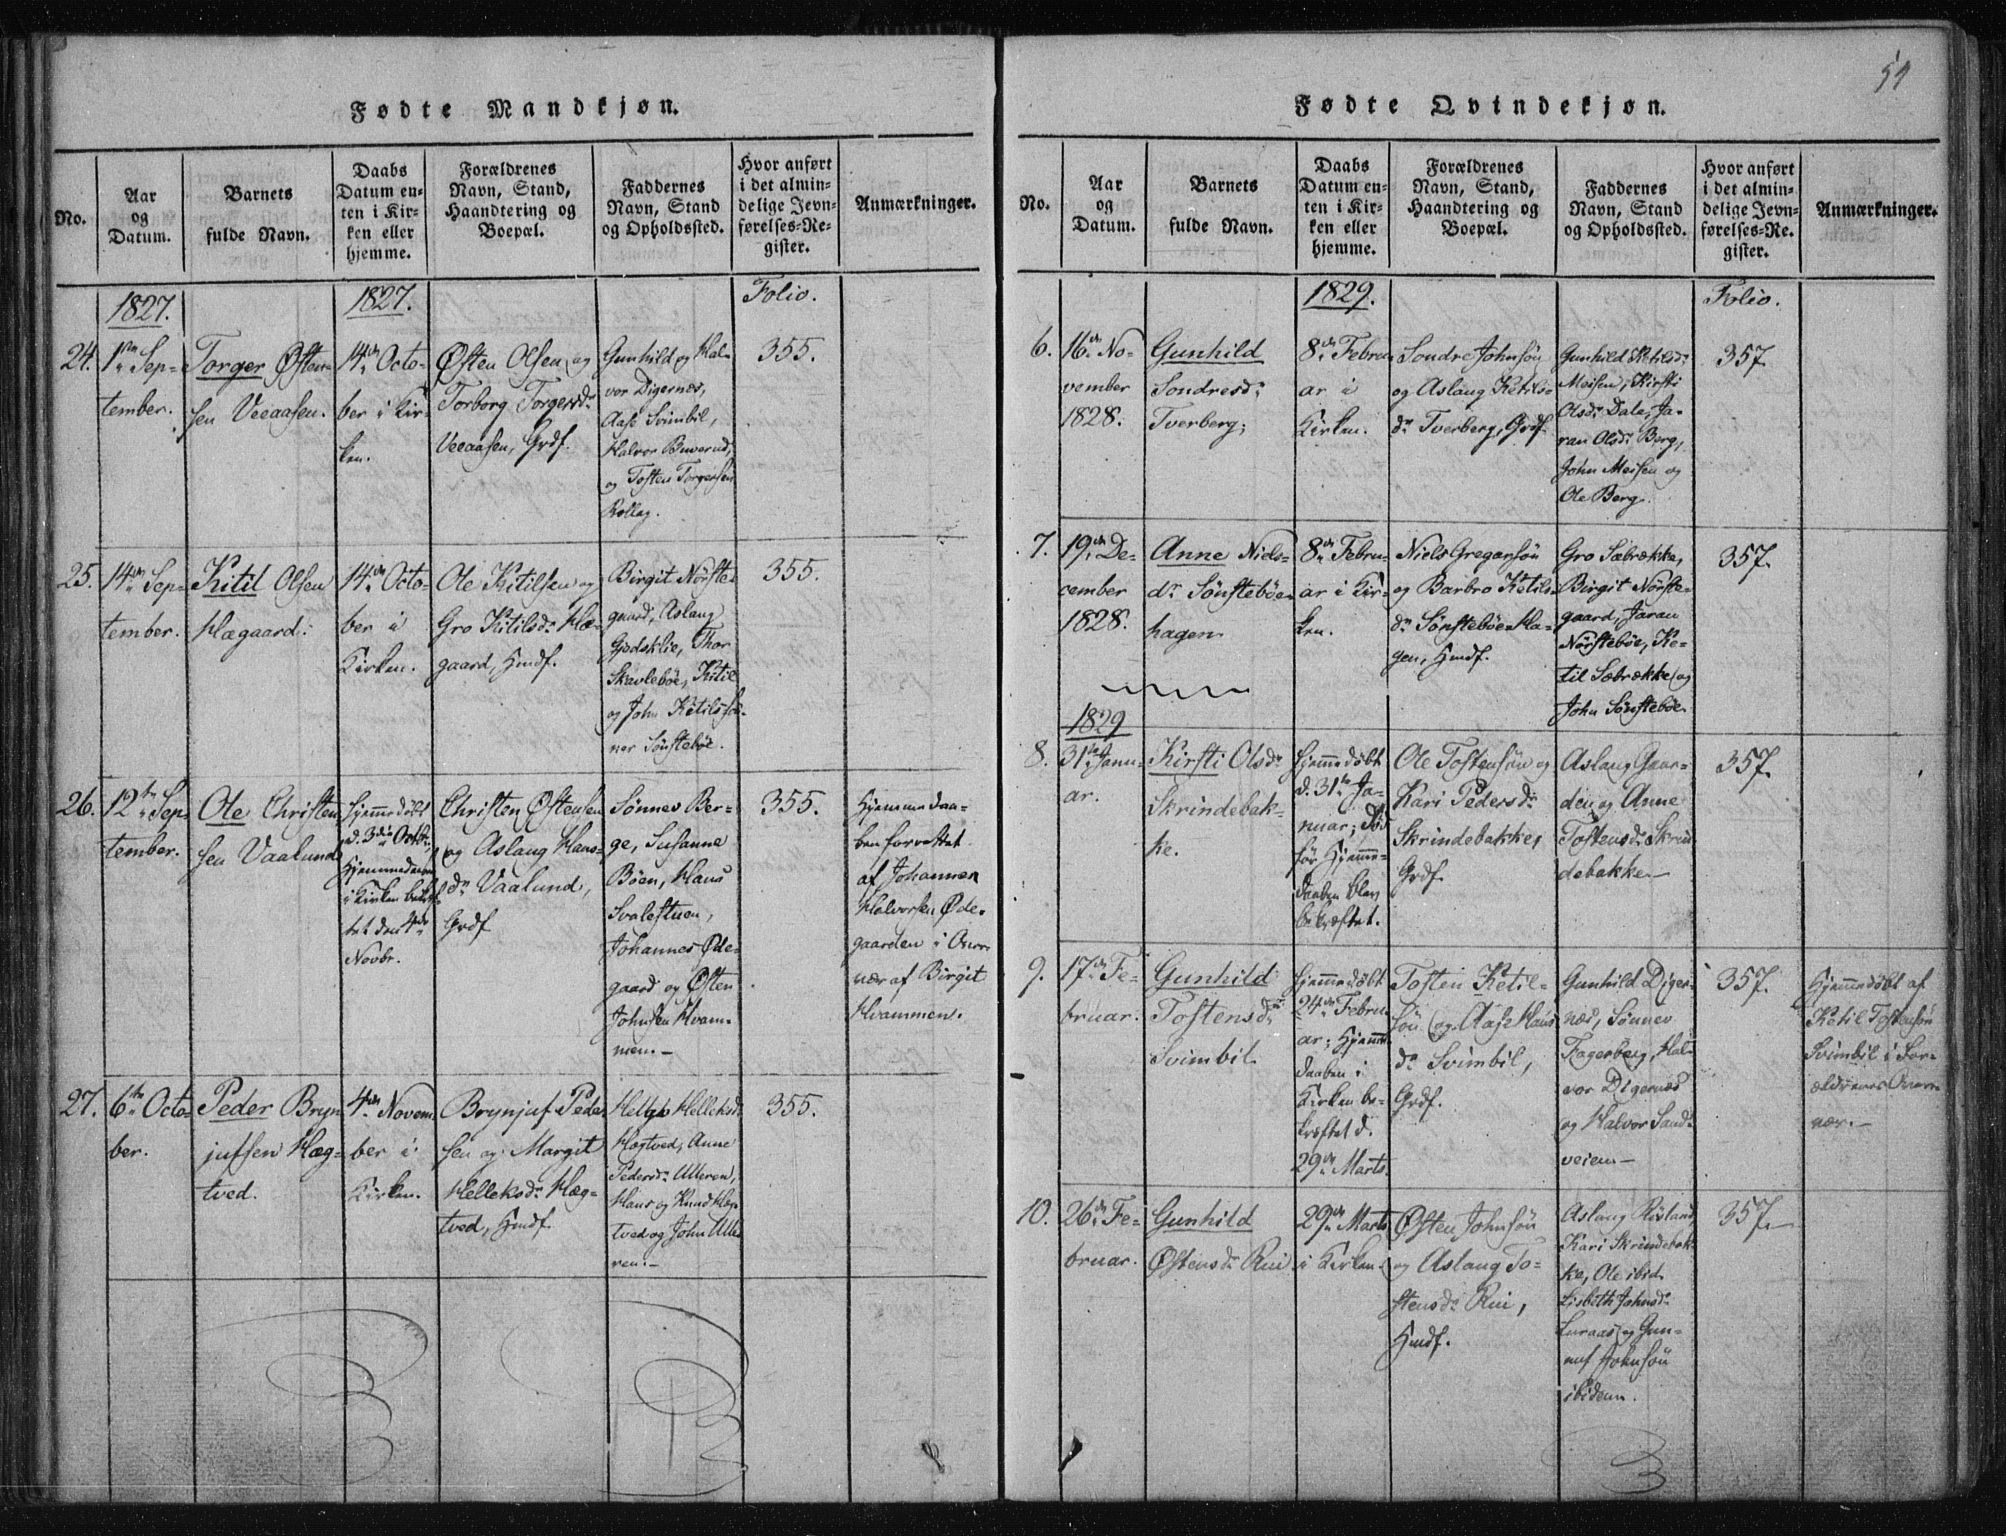 Fødte Mandkjøn.
No.
Aar
og
Datum.
Barnets
fulde Navn.
Daabs
Datum en-
ten i Kir-
ken eller
hjemme.
Forældrenes
Navn, Stand,
Haandtering og
Boepæl.
Faddernes
Navn, Stand
og Opholdssted.
Hvor anført
i det almin-
delige Jevn-
førelses-Re-
gister.
Anmærkninger.
1827.
1827.
Folio.
24.
1ste Sep-
tember.
Torger Østen-
sen Veeaasen.
14de Octo-
ber i Kir-
ken.
Østen Olsen og
Torborg Torgersdr
Veeaasen, Grdf.
Gunhild og Hal-
vor Digernæs,
Aase Svimbil,
Halvor Buverud,
og Tosten Torgersen
Kollag.
355.
25.
14de Sep-
tember.
Kitil Olsen
Hægaard.
14de Octo-
ber i
Kirken.
Ole Kitilsen og
Gro Kitilsdr Hæ-
gaard, Hmdf.
Birgit Nørste-
gaard, Aslaug
Gjødsklie, Thor
Skavlebøe, Kitil
og John Ketilssøn-
ner Sønstebøe.
355.
26.
12te Sep-
tember.
Ole Christen-
sen Vaalund
Hjemmedøbt
d. 3die Octbr,
Hjemmedaaben
i Kirken bekræf-
tet den 4de
Novbr.
Christen Østensen
og Aslaug Hans-
dr Vaalund,
Grdf
Sønnev Ber-
ge, Susanne
Bøen, Hans
Svalestuen,
Johannes Øde-
gaard og Østen
Johnsen Hvam-
men.-
355.
Hjemmedaa-
ben forrettet
af Johannes
Halvorsen Øde-
gaarden i Over-
vær af Birgit
Hvammen.
27.
6te Octo-
ber.
Peder Bryn-
julfsen Hæg-
tved.
4de Novem-
ber i
Kirken.
Brynjulf Peder-
sen og Margit
Helleksdr Hæg-
tved, Hmdf.
Helge Helleksdr
Hægtved, Anne
Pedersdr Ulleren,
Hans og Knud Hæg-
tved og John Ulle-
ren.-
355.
51
Fødte Qvindekjøn.
No.
Aar
og
Datum.
Barnets
fulde Navn.
Daabs
Datum en-
ten i Kir-
ken eller
hjemme.
Forældrenes
Navn, Stand,
Haandtering og
Boepæl.
Faddernes
Navn, Stand
og Opholdssted.
Hvor anført
i det almin-
delige Jevn-
førelses-Re-
gister.
Anmærkninger.
1829.
Folio.
6.
16de No-
vember
1828.
Gunhild
Sondresdr
Tverberg;
8de Febru-
ar i
Kirken.
Sondre Johnsøn
og Aslaug Ketils-
dr Tverberg, Grdf.
Gunhild Ketilsdr
Meisen, Kirsti
Olsdr Dale, Ja-
ran Olsdr Berg,
John Meisen og
Ole Berg.
357.
7.
19de De-
cember
1828.
Anne Niels-
dr Sønstebøe-
hagen
8de Febru-
ar i Kir-
ken.
Niels Gregarsøn
og Barbro Ketils-
dr Sønstebøe-Ha-
gen, Hmdf.
Gro Sæbrække,
Birgit Nørste-
gaard, Jaran
Nørstebøe, Ke-
til Sæbrække og
John Sønstebøe
357.
1829
8.
31te Janu-
ar.
Kirsti Olsdr
Skrindebak-
ke.
Hjemmedøbt
d. 31te Ja-
nuar; død
før Hjemme-
daaben blev
bekræftet.
Ole Tostensøn og
Kari Pedersdr
Skrindebakke,
Grdf.
Aslaug Gaar-
den og Anne
Tostensdr Skrin-
debakke.-
357.
9.
17de Fe-
bruar.
Gunhild
Tostensdr
Svimbil.
Hjemmedøbt
24de Febru-
ar; Hjemme-
daaben i
Kirken be-
kræftet d.
29de Marts.
Tosten Ketil-
søn og Aase Hans-
dr Svimbil,
Grdf.
Gunhild Diger-
næs, Sønnev
Fagerberg, Hal-
vor Digernæs
og Halvor Sand-
veien-
357.
Hjemmedøbt af
Ketil Tostensøn
Svimbil i For-
ældrenes Over-
vær.-
10.
26de Fe-
bruar.
Gunhild
Østensdr Rui
29de Marts
i Kirken.
Østen Johnsøn
og Aslaug To-
stensdr Rui,
Hmdf.
Aslaug Rioland,
Kari Skrindebak-
ke, Ole ibid.
Lisbeth Johnsdr
Luraas og Gun-
nuf Johnsøn
ibidem.
357.-